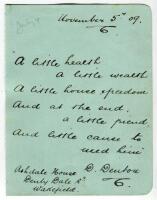 November 5th 09.
A little health
A little wealth
A little house & freedom
And at the end.
A little friend,
And little cause to
need him
D. Denton
Ashdale House
Denby Dale Rd
Wakefield.